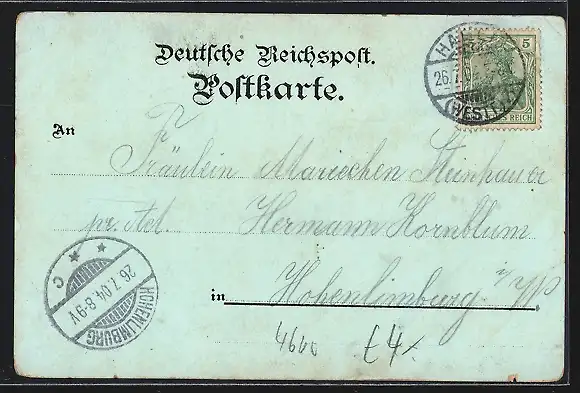 Deutsche Reichspost.
Postkarte.
An
Fräulein Mariechen Steinhauer
pr. Adr. Hermann Kornblum
in Hohenlimburg i/W
HOHENLIMBURG
26.7.04.8-9V
* * C
26.7
(WESTF.)
5
REICH
4600
£4